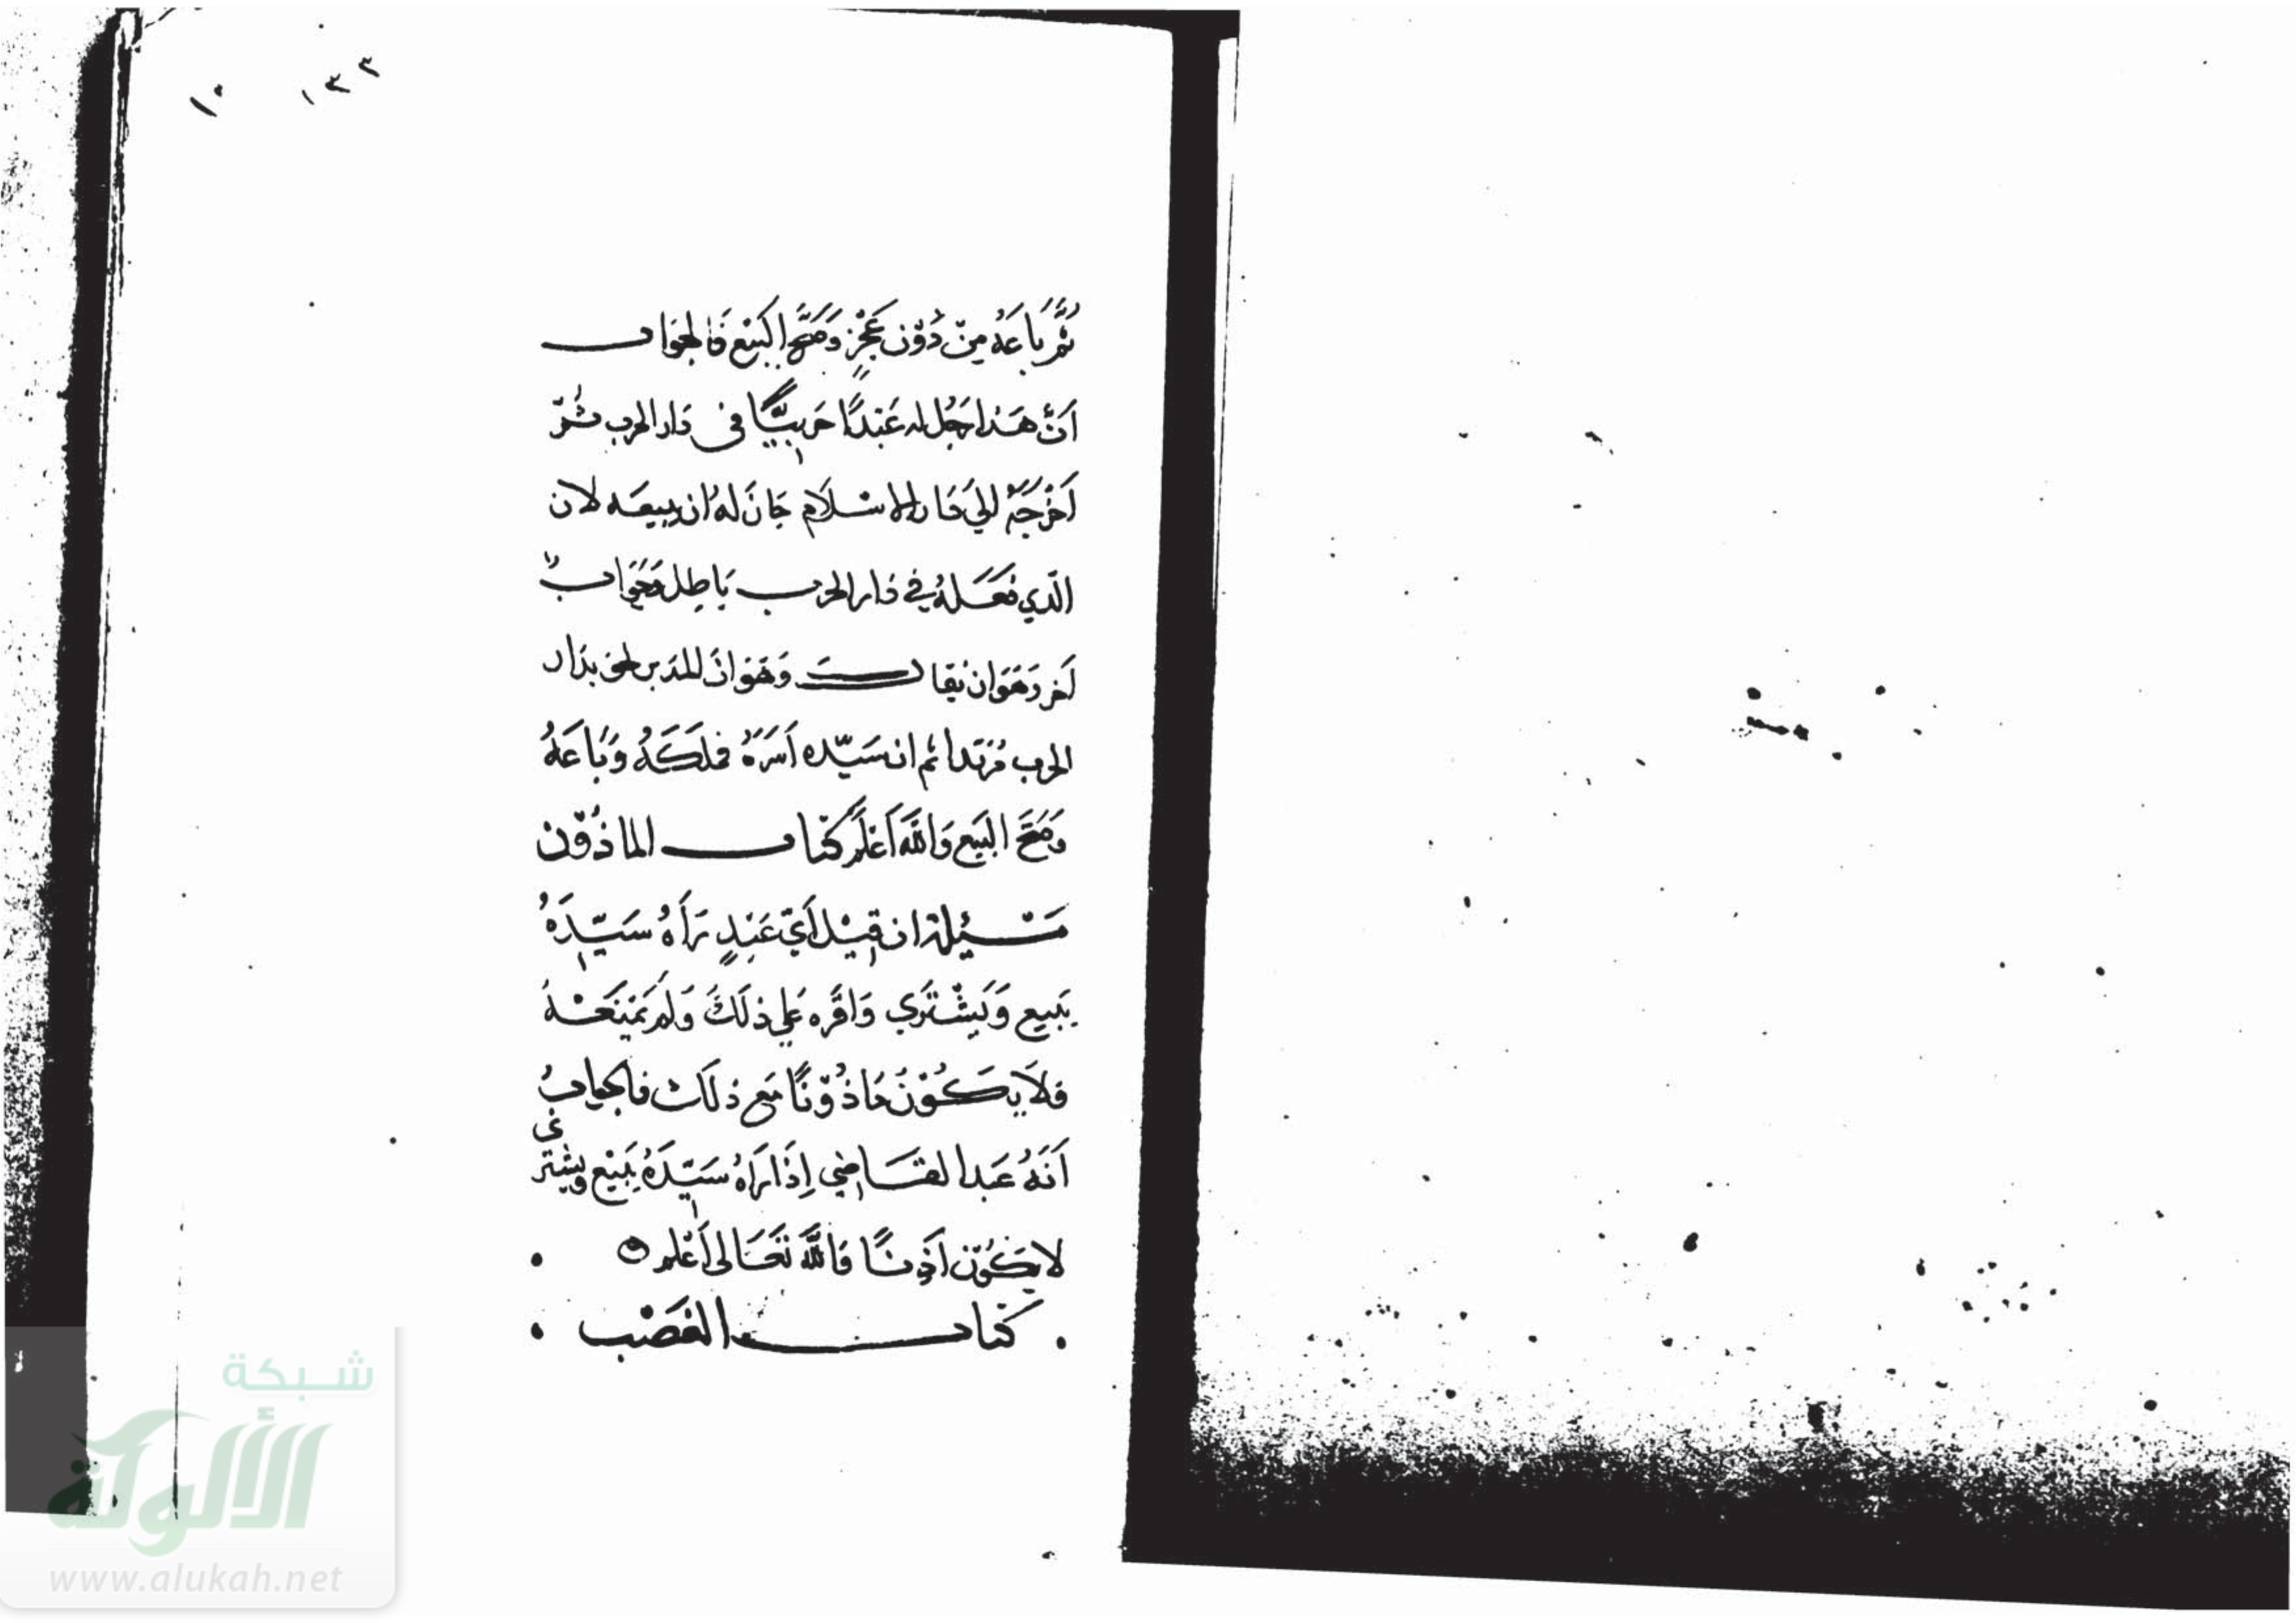 ١٣٣
١٠
ثُمَّ بَاعَهُ مِنْ دُوْن عَجْزٍ وَصَحَّ البَيْع فَالجَوَاب
أنَّ هَذا رجُل له عَبْدًا حَربيًّا في دَار الحرب ثمّ
أخْرَجَهُ إلي دَار الاسْلَام جَازَ لهُ ان يبيعَه لان
الّذي فعَلهُ في دَار الحرب بَاطِل وَجَوَابٌ
آخر وَهَوَ ان يقَال وَهَوَ انَ المدَبر لحق بدَار
الحرب مُرتَدا ثم ان سَيّده أسَرَهُ فملَكَهُ وَبَاعَهُ
وَصَحَّ البَيَع وَاللهُ أعْلَم كتاب الماذُوْن
مَسْئِلة ان قِيْل أيّ عَبْدٍ رَأهُ سَيّدَهُ
يَبيع وَيَشْتَري وَاقَرّه عَلي ذلَكَ وَلَم يَمْنَعْهُ
فلَا يَكُوْنَ مَاذُوْنًا مَع ذلَك فالجواب
أنَهُ عَبد القَاضي إذَا رَاهُ سَيّدَهُ يَبيْع ويشتري
لا يَكُوْن أذِنًا وَاللهُ تَعَالى أعْلم ه
كتاب الغَصْب
شبكة
الألوكة
www.alukah.net